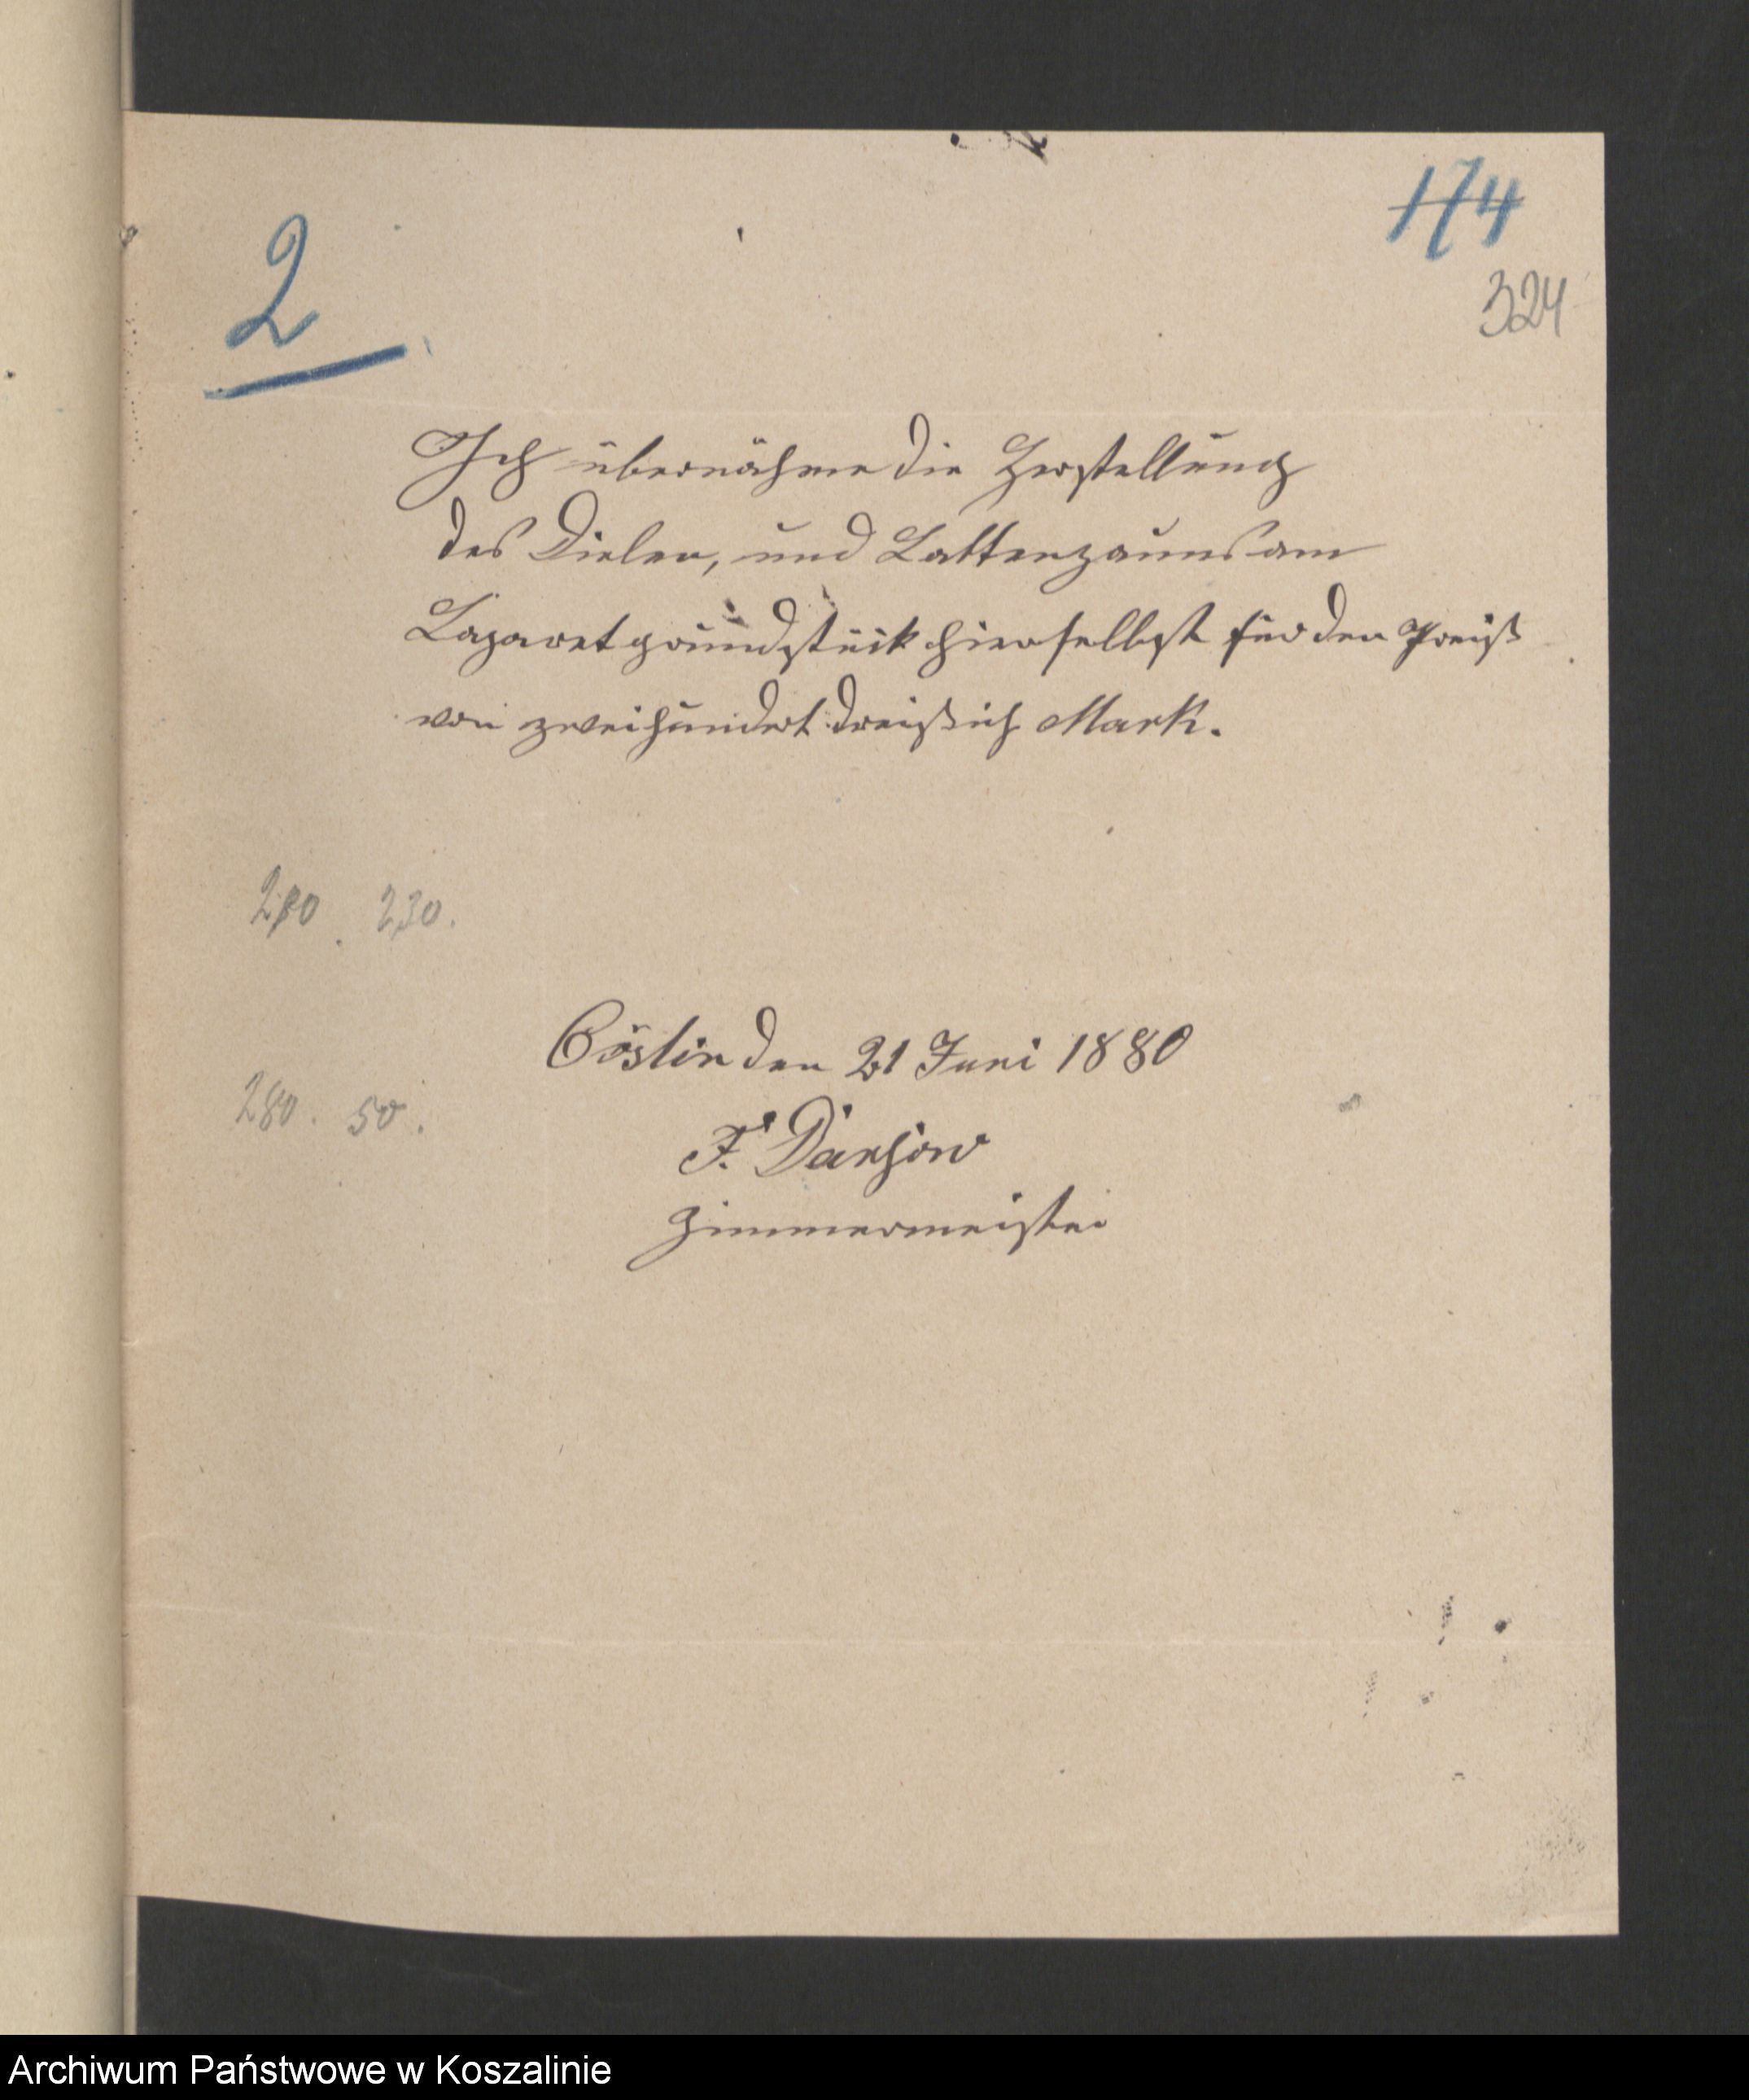 174
324
2
Ich übernähme die Herstellung
des Dielen, und Lattenzauns am
Lazaretgrundstück hierselbst für den Preiß
von zweihundert dreißich Mark.
230.
Cöslin den 21 Juni 1880
280. 50.
F. Dansow
Zimmermeister
Archiwum Państwowe w Koszalinie